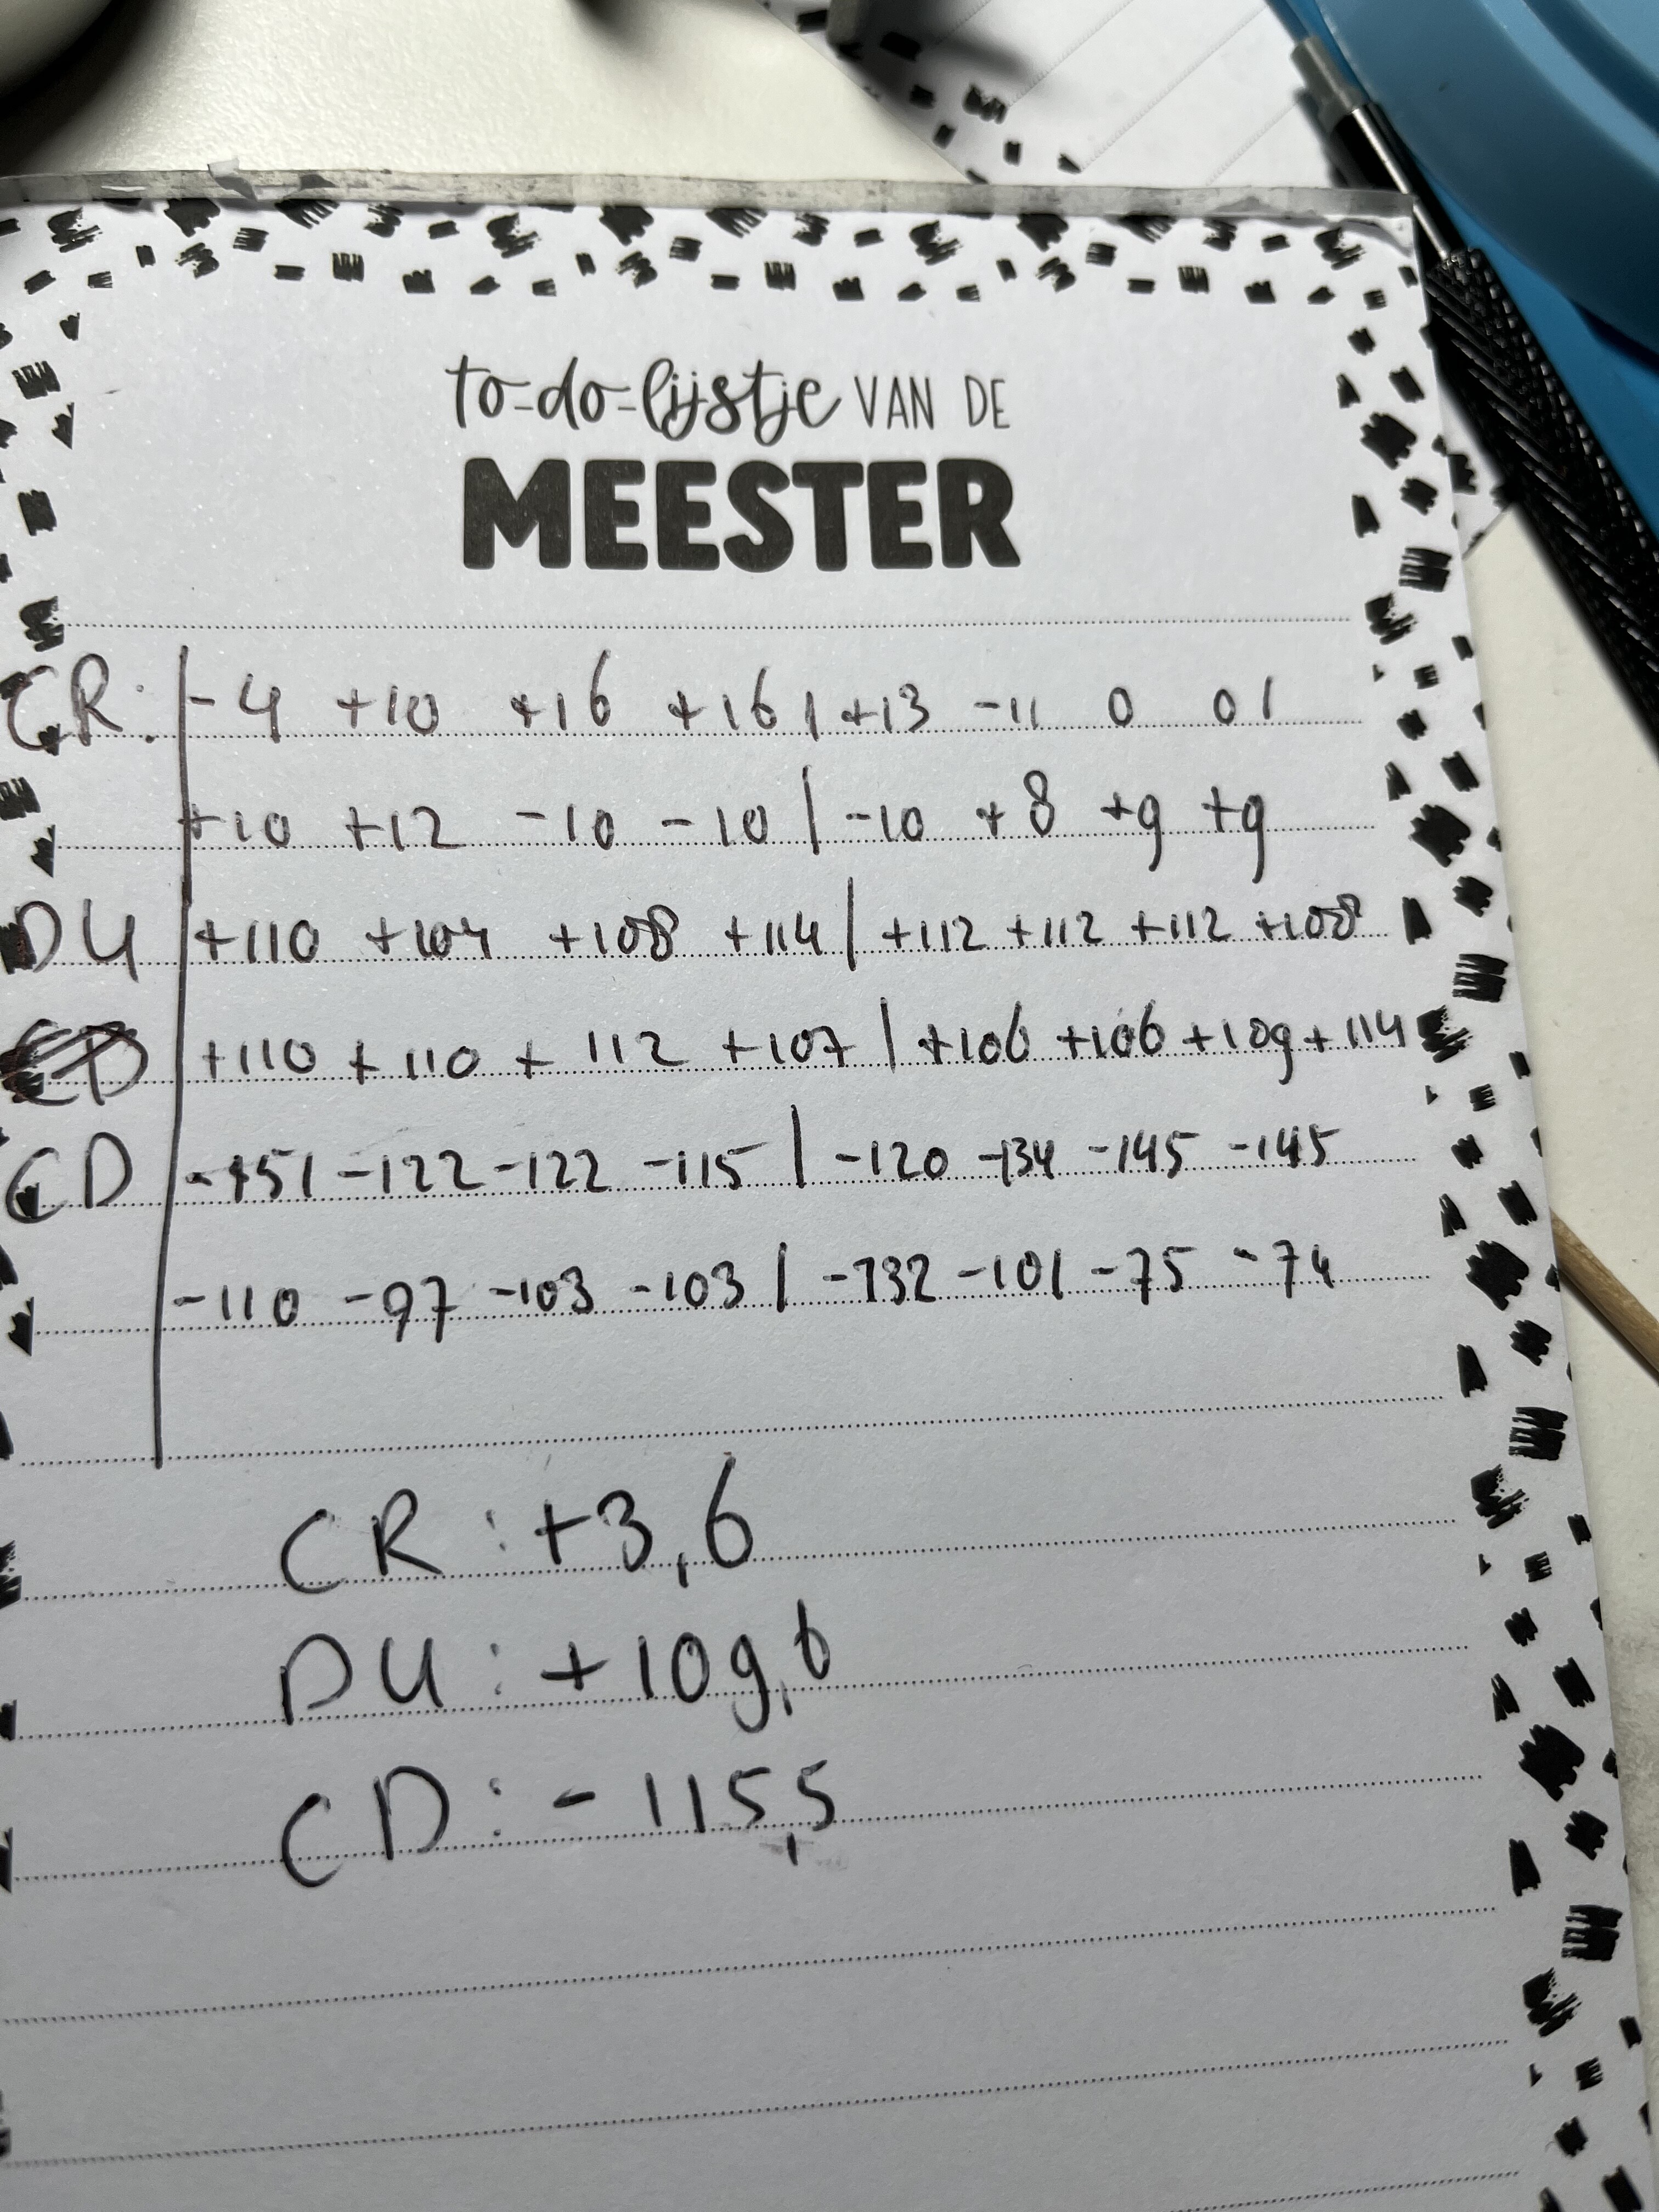 to-do-lijstje VAN DE
MEESTER
CR: -4 +10 +16 +16 | +13 -11 0 0 |
+10 +12 -10 -10 | -10 +8 +9 +9
DU +110 +107 +108 +114 | +112 +112 +112 +108
+110 +110 + 112 +107 | +106 +106 +109 + 114
CD -151 -122 -122 -115 | -120 -134 -145 -145
-110 -97 -103 -103 | -132 -101 -75 -74
CR: +3,6
DU: +109,6
CD: -115,5